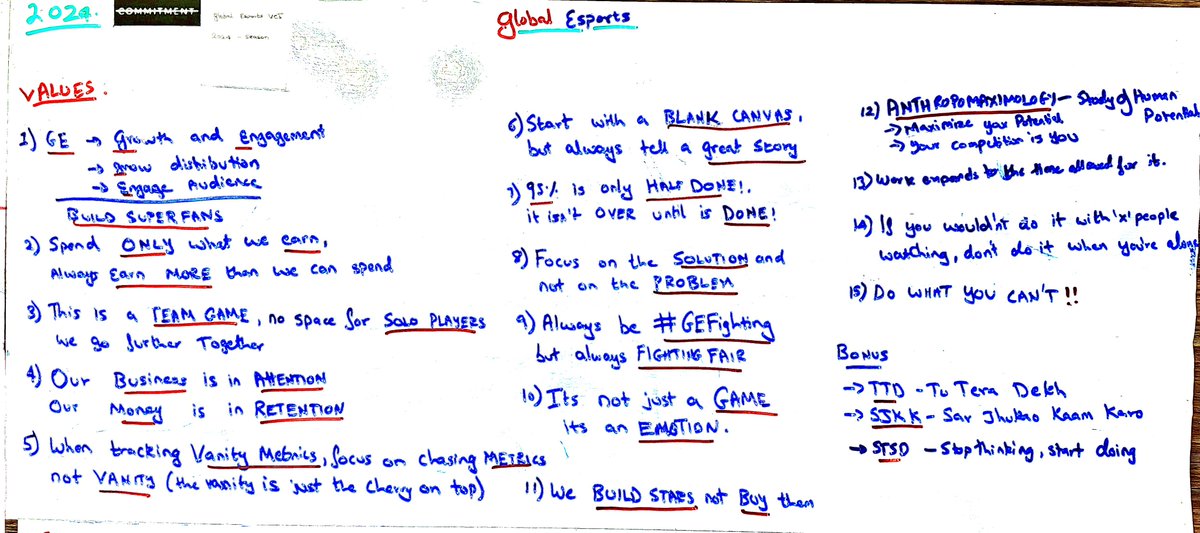 2024
COMMITMENT
Global Esports VCT
2024 - Season
Global Esports
VALUES:
1) GE → Growth and Engagement
→ grow distribution
→ Engage Audience
BUILD SUPERFANS
2) Spend ONLY what we earn,
Always Earn MORE than we can spend
3) This is a TEAM GAME, no space for SOLO PLAYERS
we go further Together
4) Our Business is in ATTENTION
Our Money is in RETENTION
5) When tracking Vanity Metrics, focus on chasing METRICS
not VANITY (the vanity is just the cherry on top)
6) Start with a BLANK CANVAS,
but always tell a great story
7) 95% is only HALF DONE!.
it isn't OVER until is DONE!
8) Focus on the SOLUTION and
not on the PROBLEM
9) Always be #GEFighting
but always FIGHTING FAIR
10) Its not just a GAME
its an EMOTION.
11) We BUILD STARS not BUY them
12) ANTHROPOMAXIMOLOGY - Study of Human
Potential
→ Maximize your Potential
→ your competition is you
13) Work expands to the time allowed for it.
14) If you wouldn't do it with 'x' people
watching, don't do it when you're alone
15) DO WHAT YOU CAN'T!!
BONUS
→ TTD - Tu Tera Dekh
→ SJKK - Sar Jhukao Kaam Karo
→ STSD - Stop thinking, start doing